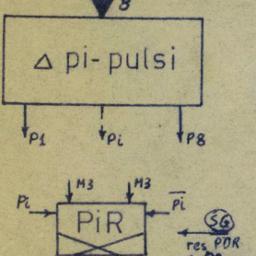 8
Δ pi-pulsi
P1 Pi P8
M3 M3
Pi PiR P̅i̅
SG
res PDR